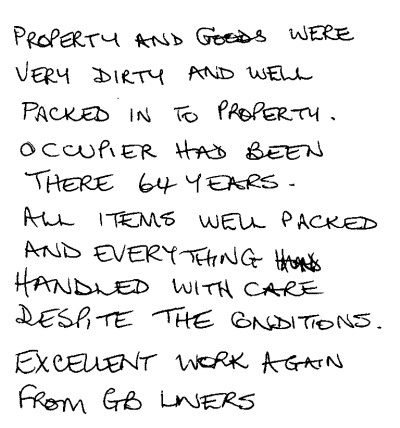 PROPERTY AND GOODS WERE
VERY DIRTY AND WELL
PACKED IN TO PROPERTY.
OCCUPIER HAD BEEN
THERE 64 YEARS.
ALL ITEMS WELL PACKED
AND EVERYTHING
HANDLED WITH CARE
DESPITE THE CONDITIONS.
EXCELLENT WORK AGAIN
FROM GB LINERS